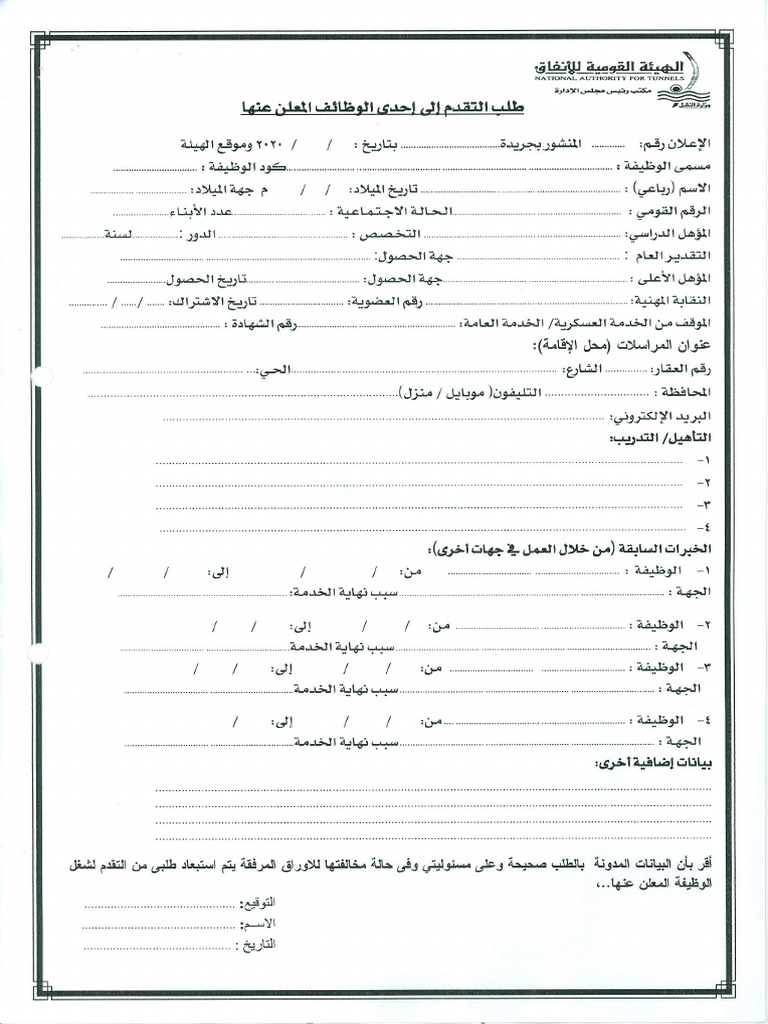 الهيئة القومية للأنفاق
NATIONAL AUTHORITY FOR TUNNELS
مكتب رئيس مجلس الإدارة
وزارة النقل
طلب التقدم إلى إحدى الوظائف المعلن عنها
الإعلان رقم: ............ المنشور بجريدة........................ بتاريخ : / / ٢٠٢٠ وموقع الهيئة
مسمى الوظيفة : ........................................ كود الوظيفة : ........................
الاسم (رباعي) : ........................................ تاريخ الميلاد: / / م جهة الميلاد: ........................
الرقم القومي : ........................ الحالة الاجتماعية : ........................ عدد الأبناء ............
المؤهل الدراسي: ........................ التخصص : ........................ الدور : ............ لسنة ............
التقدير العام : ........................ جهة الحصول: ........................
المؤهل الأعلى : ........................ جهة الحصول: ........................ تاريخ الحصول ............
النقابة المهنية: ........................ رقم العضوية: ........................ تاريخ الاشتراك: ...... /..... / ............
الموقف من الخدمة العسكرية/ الخدمة العامة: ........................ رقم الشهادة : ........................
عنوان المراسلات (محل الإقامة):
رقم العقار: ............ الشارع: ........................ الحي: ........................
المحافظة : ........................ التليفون( موبايل / منزل) ........................
البريد الإلكتروني: ........................
التأهيل/ التدريب:
١- ........................
٢- ........................
٣- ........................
٤- ........................
الخبرات السابقة (من خلال العمل في جهات أخرى):
١- الوظيفة : ........................ من: / / إلى: / /
الجهة : ........................ سبب نهاية الخدمة: ........................
٢- الوظيفة : ........................ من: / / إلى: / /
الجهة : ........................ سبب نهاية الخدمة ........................
٣- الوظيفة : ........................ من: / / إلى: / /
الجهة : ........................ سبب نهاية الخدمة ........................
٤- الوظيفة : ........................ من: / / إلى: /
الجهة : ........................ سبب نهاية الخدمة ........................
بيانات إضافية أخرى:
........................
........................
........................
........................
أقر بأن البيانات المدونة بالطلب صحيحة وعلى مسئوليتي وفى حالة مخالفتها للاوراق المرفقة يتم استبعاد طلبى من التقدم لشغل
الوظيفة المعلن عنها..،
التوقيع: ........................
الاسـم: ........................
التاريخ : ........................